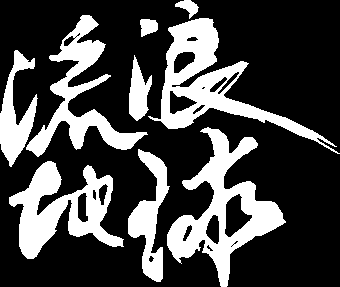 流浪
地球